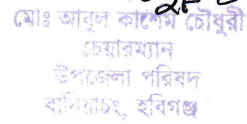 মোঃ আবুল কাশেম চৌধুরী
চেয়ারম্যান
উপজেলা পরিষদ
বানিয়াচং, হবিগঞ্জ